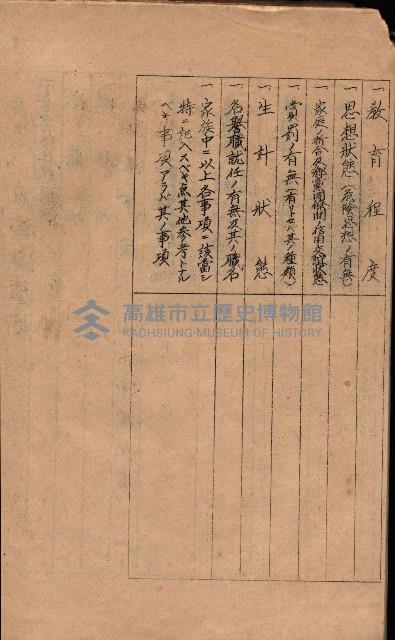 一 教育程度
一 思想狀態(危險思想ノ有無)
一 家庭ノ折合及鄰家關係信用交誼狀態
一 賞罰ノ有無(有リトセバ其ノ種類)
一 生計狀態
一 名譽職就任ノ有無及其ノ職名
一 家族中ニ以上各事項ニ該當シ
特ニ記入スベキ点其他參考トナル
ベキ事項アラバ其ノ事項
高雄市立歷史博物館
KAOHSIUNG MUSEUM OF HISTORY